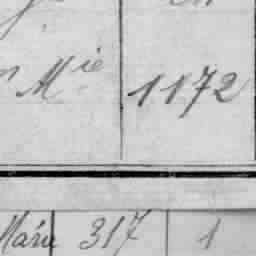 Mie 1172
Marie 317 1